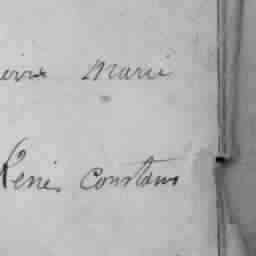 ierre Marie
René Constans